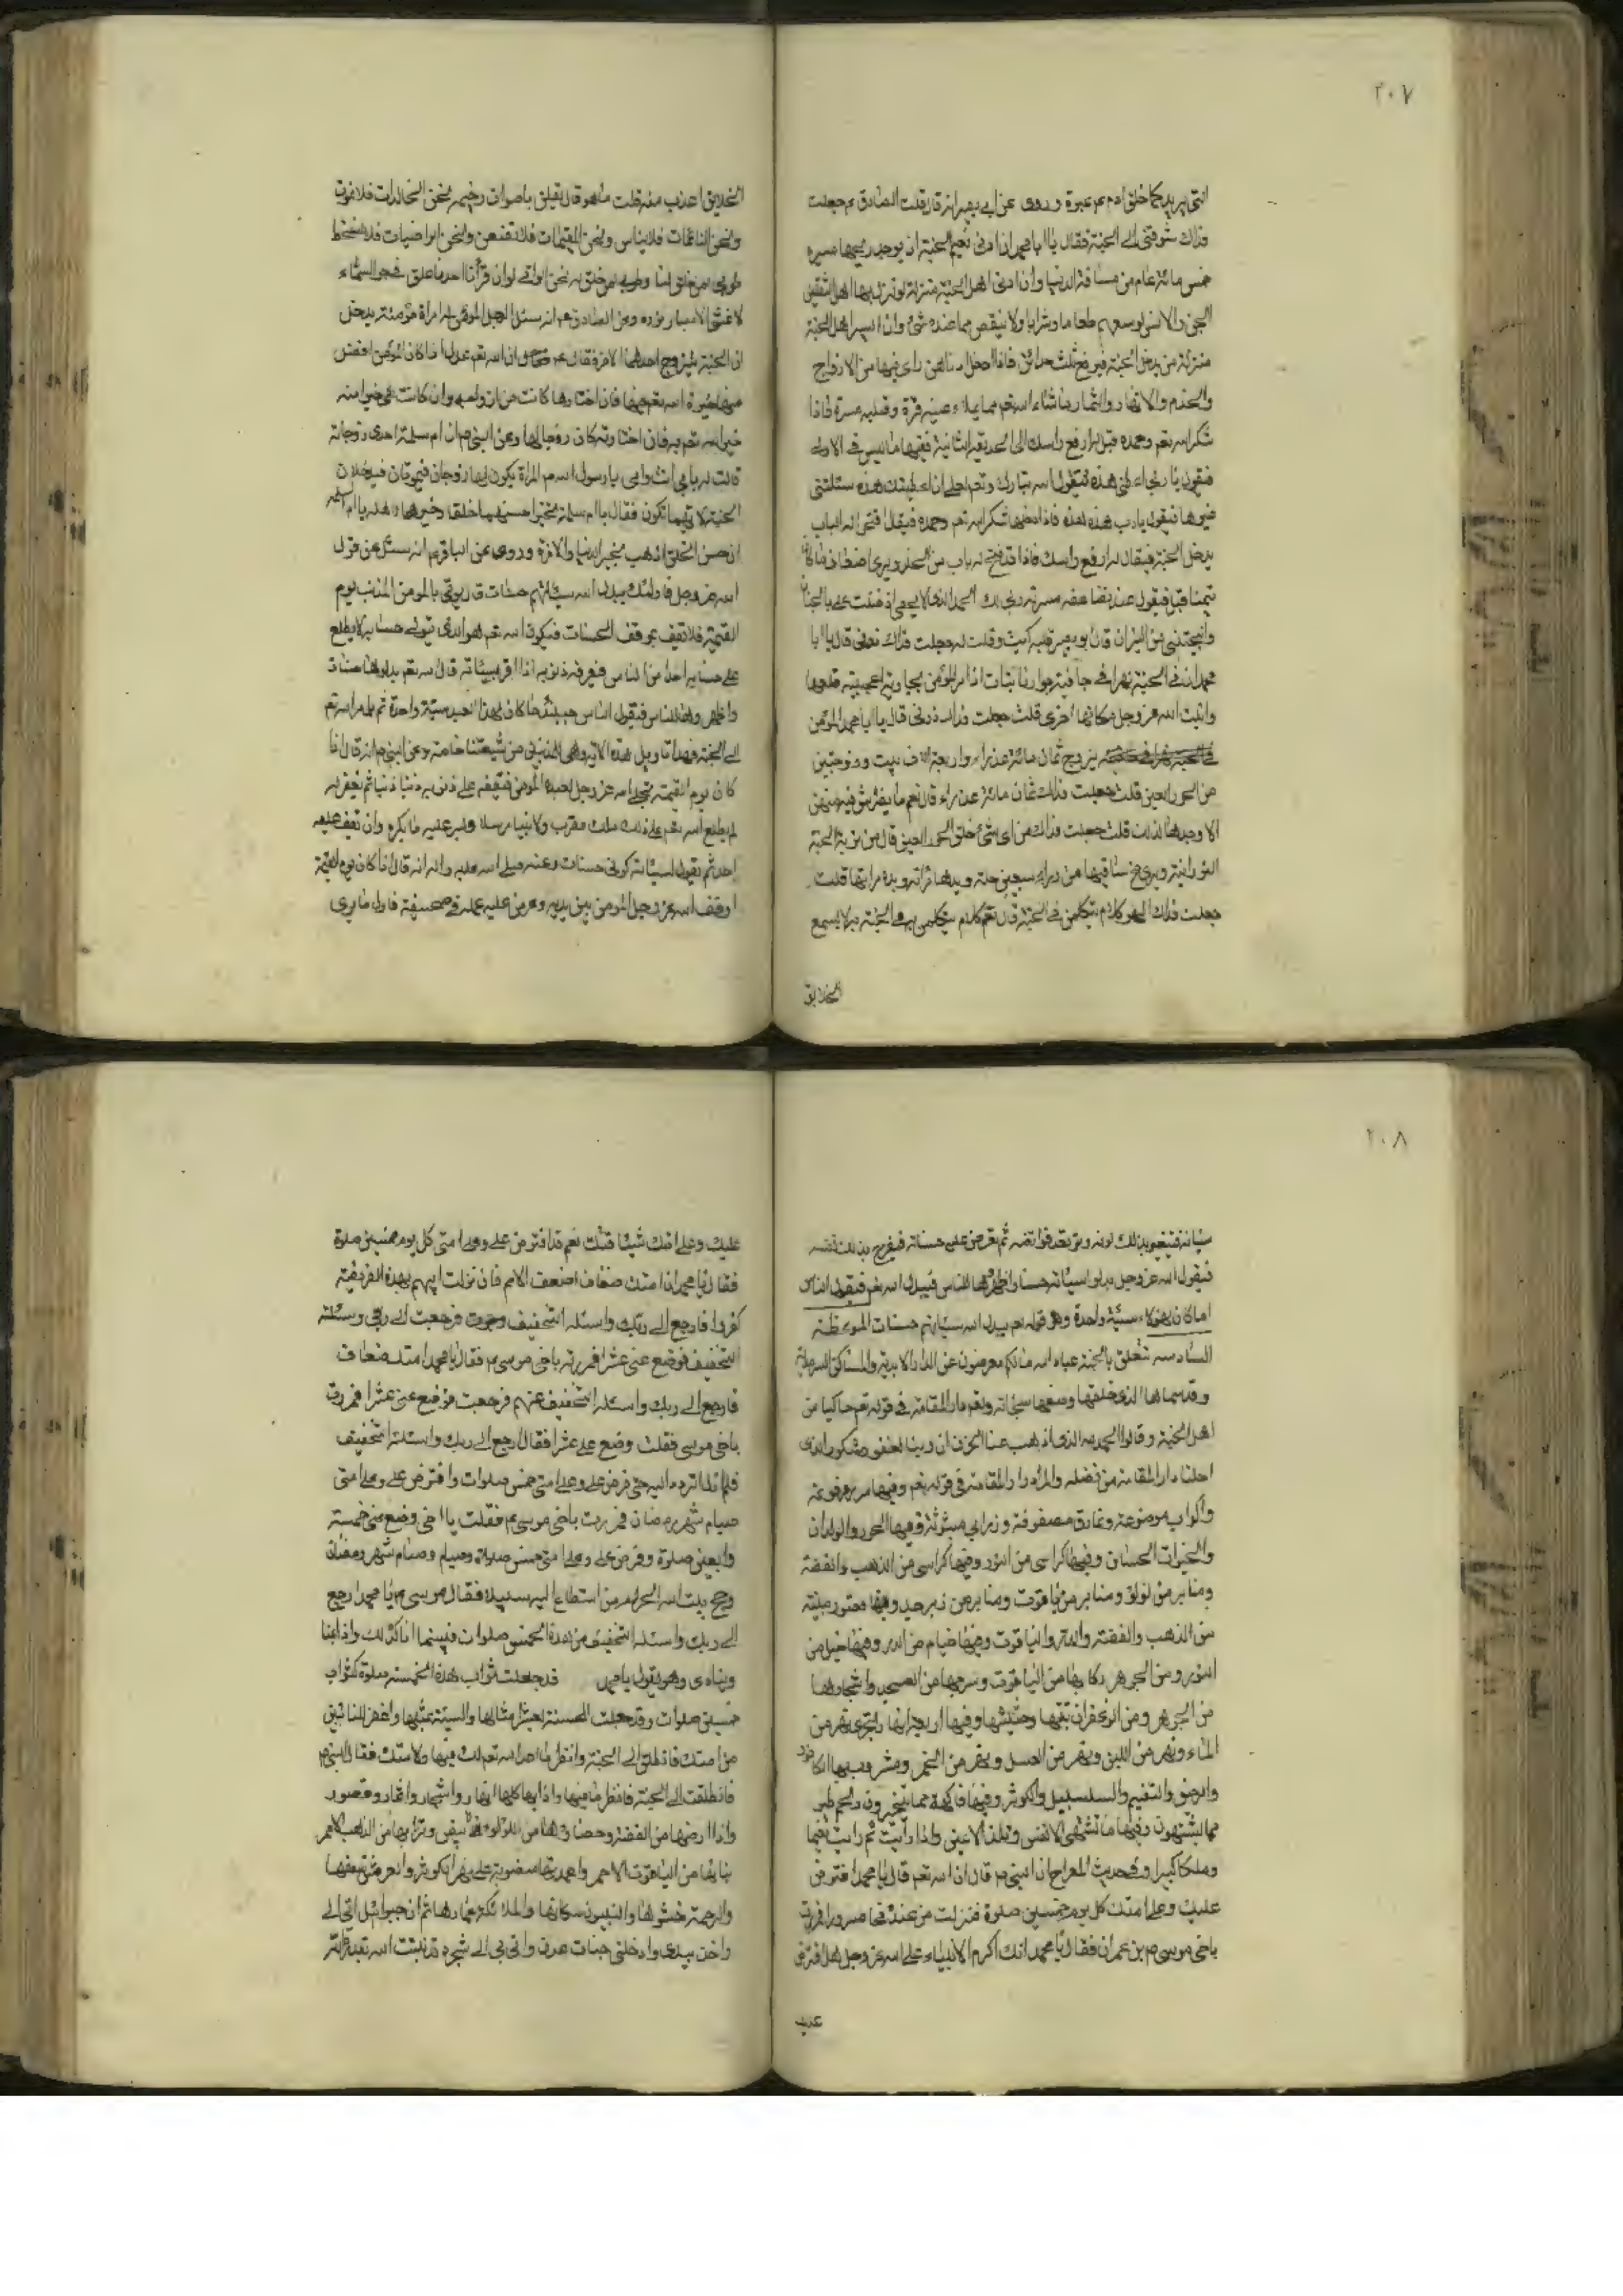 ٢٠٧
انثى يريد كما خلق ادم عم عبرة وروى عن ابى بصير انه قال قلت للصادق عم جعلت
فداك شوقنى الى الجنة فقال يا ابا محمد ان ادنى نعيم الجنة ان يوجد ريحها مسيرة
خمس مائة عام من مسافة الدنيا وان ادنى اهل الجنة منزلة لو نزل بها اهل الثقلين
الجن والانس لوسعهم طعاما وشرابا ولا ينقص مما عنده شئ وان ايسر اهل الجنة
منزلة من يدخل الجنة فيرفع ثلث حدائق فاذا دخل ادناهن راى فيها من الازواج
والخدم والانهار والثمار ما شاء الله تعم مما يملاء عينه قرة وقلبه مسرة فاذا
شكر الله تعم وحمده قيل له ارفع راسك الى الحديقة الثانية ففيها ما ليس فى الاولى
فيقول يا رب اعطنى هذه فيقول الله تبارك وتعم لعلى ان اعطيتك هذه سئلتنى
غيرها فيقول يا رب هذه هذه فاذا دخلها شكر الله تعم وحمده فيقال افتحوا له الباب
يدخل الجنة فيقال له ارفع راسك فاذا قد فتح له باب من الخلد ويرى اضعاف ما كان
تمنا قبل فيقول عند تضاعف مسرته ربى لك الحمد الذى لا يحصى اذ مننت على بالجنان
وانجيتنى من النيران قال ابو بصير فبكيت وقلت له جعلت فداك زدنى قال يا ابا
محمد ان فى الجنة نهرا فى حافته جوار نابتات اذا مر المؤمن بجارية اعجبته قلعها
وانبت الله عز وجل مكانها اخرى قلت جعلت فداك زدنى قال يا ابا محمد المؤمن
يزوج ثمان مائة عذراء واربعة الاف ثيب وزوجتين
من الحور العين قلت جعلت فداك ثمان مائة عذراء قال نعم ما يفترش فيهن شئ
الا وجدها كذلك قلت جعلت فداك من اى شئ خلق الحور العين قال من تربة الجنة
النورانية ويرى مخ ساقيها من وراء سبعين حلة كبدها مراته وكبده مراتها قلت
جعلت فداك الهن كلام يتكلمن فى الجنة قال نعم كلام يتكلمن به فى الجنة لم يسمع
الخلايق
الخلايق اعذب منه قلت ما هو قال يقلن باصوات رخيمة نحن الخالدات فلا نموت
ونحن الناعمات فلا نباس ونحن المقيمات فلا نظعن ونحن الراضيات فلا نسخط
طوبى لمن خلق لنا وطوبى لمن خلقنا له نحن اللواتى لو ان قرن احدنا علق فى جو السماء
لاغشى الابصار نوره وعن الصادق عم انه سئل الرجل المؤمن له امراة مؤمنة يدخل
ان الجنة يتزوج احدهما الاخر فقال عم ان الله تعم عدل اذا كان المؤمن افضل
منها خيره الله تعم فيها فان اختارها كانت من ازواجه وان كانت هى خيرا منه
خيرها الله تعم به فان اختارته كان زوجا لها وعن النبى ص ان ام سلمة احدى زوجاته
قالت له بابى انت وامى يا رسول الله ص المراة يكون لها زوجان فيموتان فيدخلان
الجنة لايهما تكون فقال يا ام سلمة تخير احسنهما خلقا وخيرهما لاهله يا ام سلمه
ان حسن الخلق ذهب بخير الدنيا والاخرة وروى عن الباقر عم انه سئل عن قول
الله عز وجل فاولئك يبدل الله سيئاتهم حسنات قال يوتى بالمومن المذنب يوم
القيمة فلا يقف بموقف الحسنات فيكون الله تعم هو الذى يتولى حسابه لا يطلع
على حسابه احدا من الناس فيعرفه ذنوبه اذا اقر بسيئاته قال الله تعم بدلوها حسنات
واظهروها للناس فيقول الناس حينئذ ما كان لهذا العبد سيئة واحدة ثم يامر الله تعم
الى الجنة فهذا تاويل هذه الاية وهى للمذنبين من شيعتنا خاصة وعن النبى ص انه قال اذا
كان يوم القيمة يتجلى الله عز وجل لعبده المومن فيقفه على ذنوبه ذنبا ذنبا ثم يغفر له
لم يطلع الله تعم على ذلك ملك مقرب ولا نبيا مرسلا ويستر عليه ما يكره ان يقف عليه
احد ثم يقول لسيئاته كونى حسنات وعنه صلى الله عليه واله انه قال اذا كان يوم القيمة
اوقف الله عز وجل المومن بين يديه وعرض عليه عمله فى صحيفة فاول ما يرى
٢٠٨
سيئاته فيتغير بذلك لونه وترتعد فرائصه ثم تعرض عليه حسناته فيفرح بذلك نفسه
فيقول الله عز وجل بدلوا سيئاته حسنات واظهروها للناس فيبدل الله لهم فيقول الناس
اما كان لهؤلاء سيئة واحدة وهو قوله تعم يبدل الله سيئاتهم حسنات الموعظة
السادسه تتعلق بالجنة عباد الله ما لكم معرضون عن الدار الابدية والمساكن السرمدية
وقد سماها الذى خلقها وصنعها سبحانه وتعم دار المقامة فى قوله تعم حاكيا من
اهل الجنة وقالوا الحمد لله الذى اذهب عنا الحزن ان ربنا لغفور شكور الذى
احلنا دار المقامة من فضله والمراد دار المقامة فى قوله تعم وفيها سرر مرفوعة
واكواب موضوعة ونمارق مصفوفة وزرابى مبثوثة وفيها الحور والولدان
والخيرات الحسان وفيها كراسى من النور وفيها كراسى من الذهب والفضة
ومنابر من لؤلؤ ومنابر من ياقوت ومنابر من زبرجد وفيها قصور مبنية
من الذهب والفضة والدر والياقوت وفيها خيام من الدر وفيها خيل من
النور ومن الجوهر ركابها من الياقوت وسرجها من العسجد واشجارها
من الجوهر ومن الزعفران نبتها وحشيشها وفيها اربع انهار تجرى نهر من
الماء ونهر من اللبن ونهر من العسل ونهر من الخمر ومشروب بها الكافور
والرحيق والتسنيم والسلسبيل والكوثر وفيها فاكهة مما يتخيرون ولحم طير
مما يشتهون وفيها ما تشتهى الانفس وتلذ الاعين واذا رايت ثم رايت نعيما
وملكا كبيرا وفى حديث المعراج ان النبى ص قال ان الله تعم قال يا محمد افترض
عليك وعلى امتك كل يوم خمسين صلوة فنزلت من عنده مسرورا فمررت
باخى موسى عم بن عمران فقال يا محمد انك اكرم الانبياء على الله عز وجل هل افترض
عليك
عليك وعلى امتك شيئا قلت نعم قد افترض على وعلى امتى كل يوم خمسين صلوة
فقال يا محمد ان امتك ضعاف اضعف الامم فان نزلت اليهم بهذه الفريضة
كفروا فارجع الى ربك واسئله التخفيف فرجعت الى ربى وسئلته
التخفيف فوضع عنى عشرا فمررت باخى موسى عم فقال يا محمد امتك ضعاف
فارجع الى ربك واسئله التخفيف عنهم فرجعت فوضع عنى عشرا فمررت
باخى موسى فقلت وضع عنى عشرا فقال ارجع الى ربك واسئله التخفيف
فلم ازل اتردد اليه حتى فرض على وعلى امتى خمس صلوات وافترض على وعلى امتى
صيام شهر رمضان فمررت باخى موسى عم فقلت يا اخى وضع عنى خمسة
واربعين صلوة وفرض على وعلى امتى خمس صلوات وصيام شهر رمضان
وحج بيت الله الحرام من استطاع اليه سبيلا فقال موسى عم يا محمد ارجع
الى ربك واسئله التخفيف من هذه الخمس صلوات فبينما انا كذلك واذا بنا
وينادى وهو يقول يا محمد قد جعلت ثواب هذه الخمسة صلوة كثواب
خمسين صلوات وقد جعلت الحسنة بعشر امثالها والسيئة بمثلها واغفر للتائبين
من امتك فانطلق الى الجنة وانظر ما اعد الله تعم لك فيها ولامتك فقال النبى ص
فانطلقت الى الجنة فانظر ما فيها واذا بها كلها انهار واشجار واثمار وقصور
واذا ارضها من الفضة وحصاؤها من اللؤلؤ الابيض وترابها من الذهب الاحمر
بنائها من الياقوت الاحمر واعمدتها منصوبة على نهر الكوثر والعرش سقفها
والرحمة حشوها والنبيون سكانها والملائكة عمارها ثم ان جبرائيل اتى الى
واخذ بيدى وادخلنى جنات عدن واتى بى الى شجرة قد نبتت